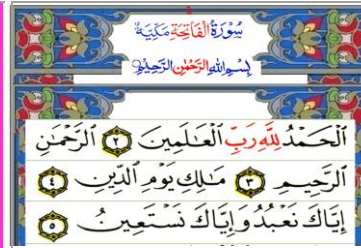 سُورَةُ الْفَاتِحَةِ مَكِّيَّةٌ
بِسْمِ اللهِ الرَّحْمٰنِ الرَّحِيْمِ
ٱلْحَمْدُ لِلَّهِ رَبِّ ٱلْعَـٰلَمِينَ ٢ ٱلرَّحْمَـٰنِ
ٱلرَّحِيمِ ٣ مَـٰلِكِ يَوْمِ ٱلدِّينِ ٤
إِيَّاكَ نَعْبُدُ وَإِيَّاكَ نَسْتَعِينُ ٥